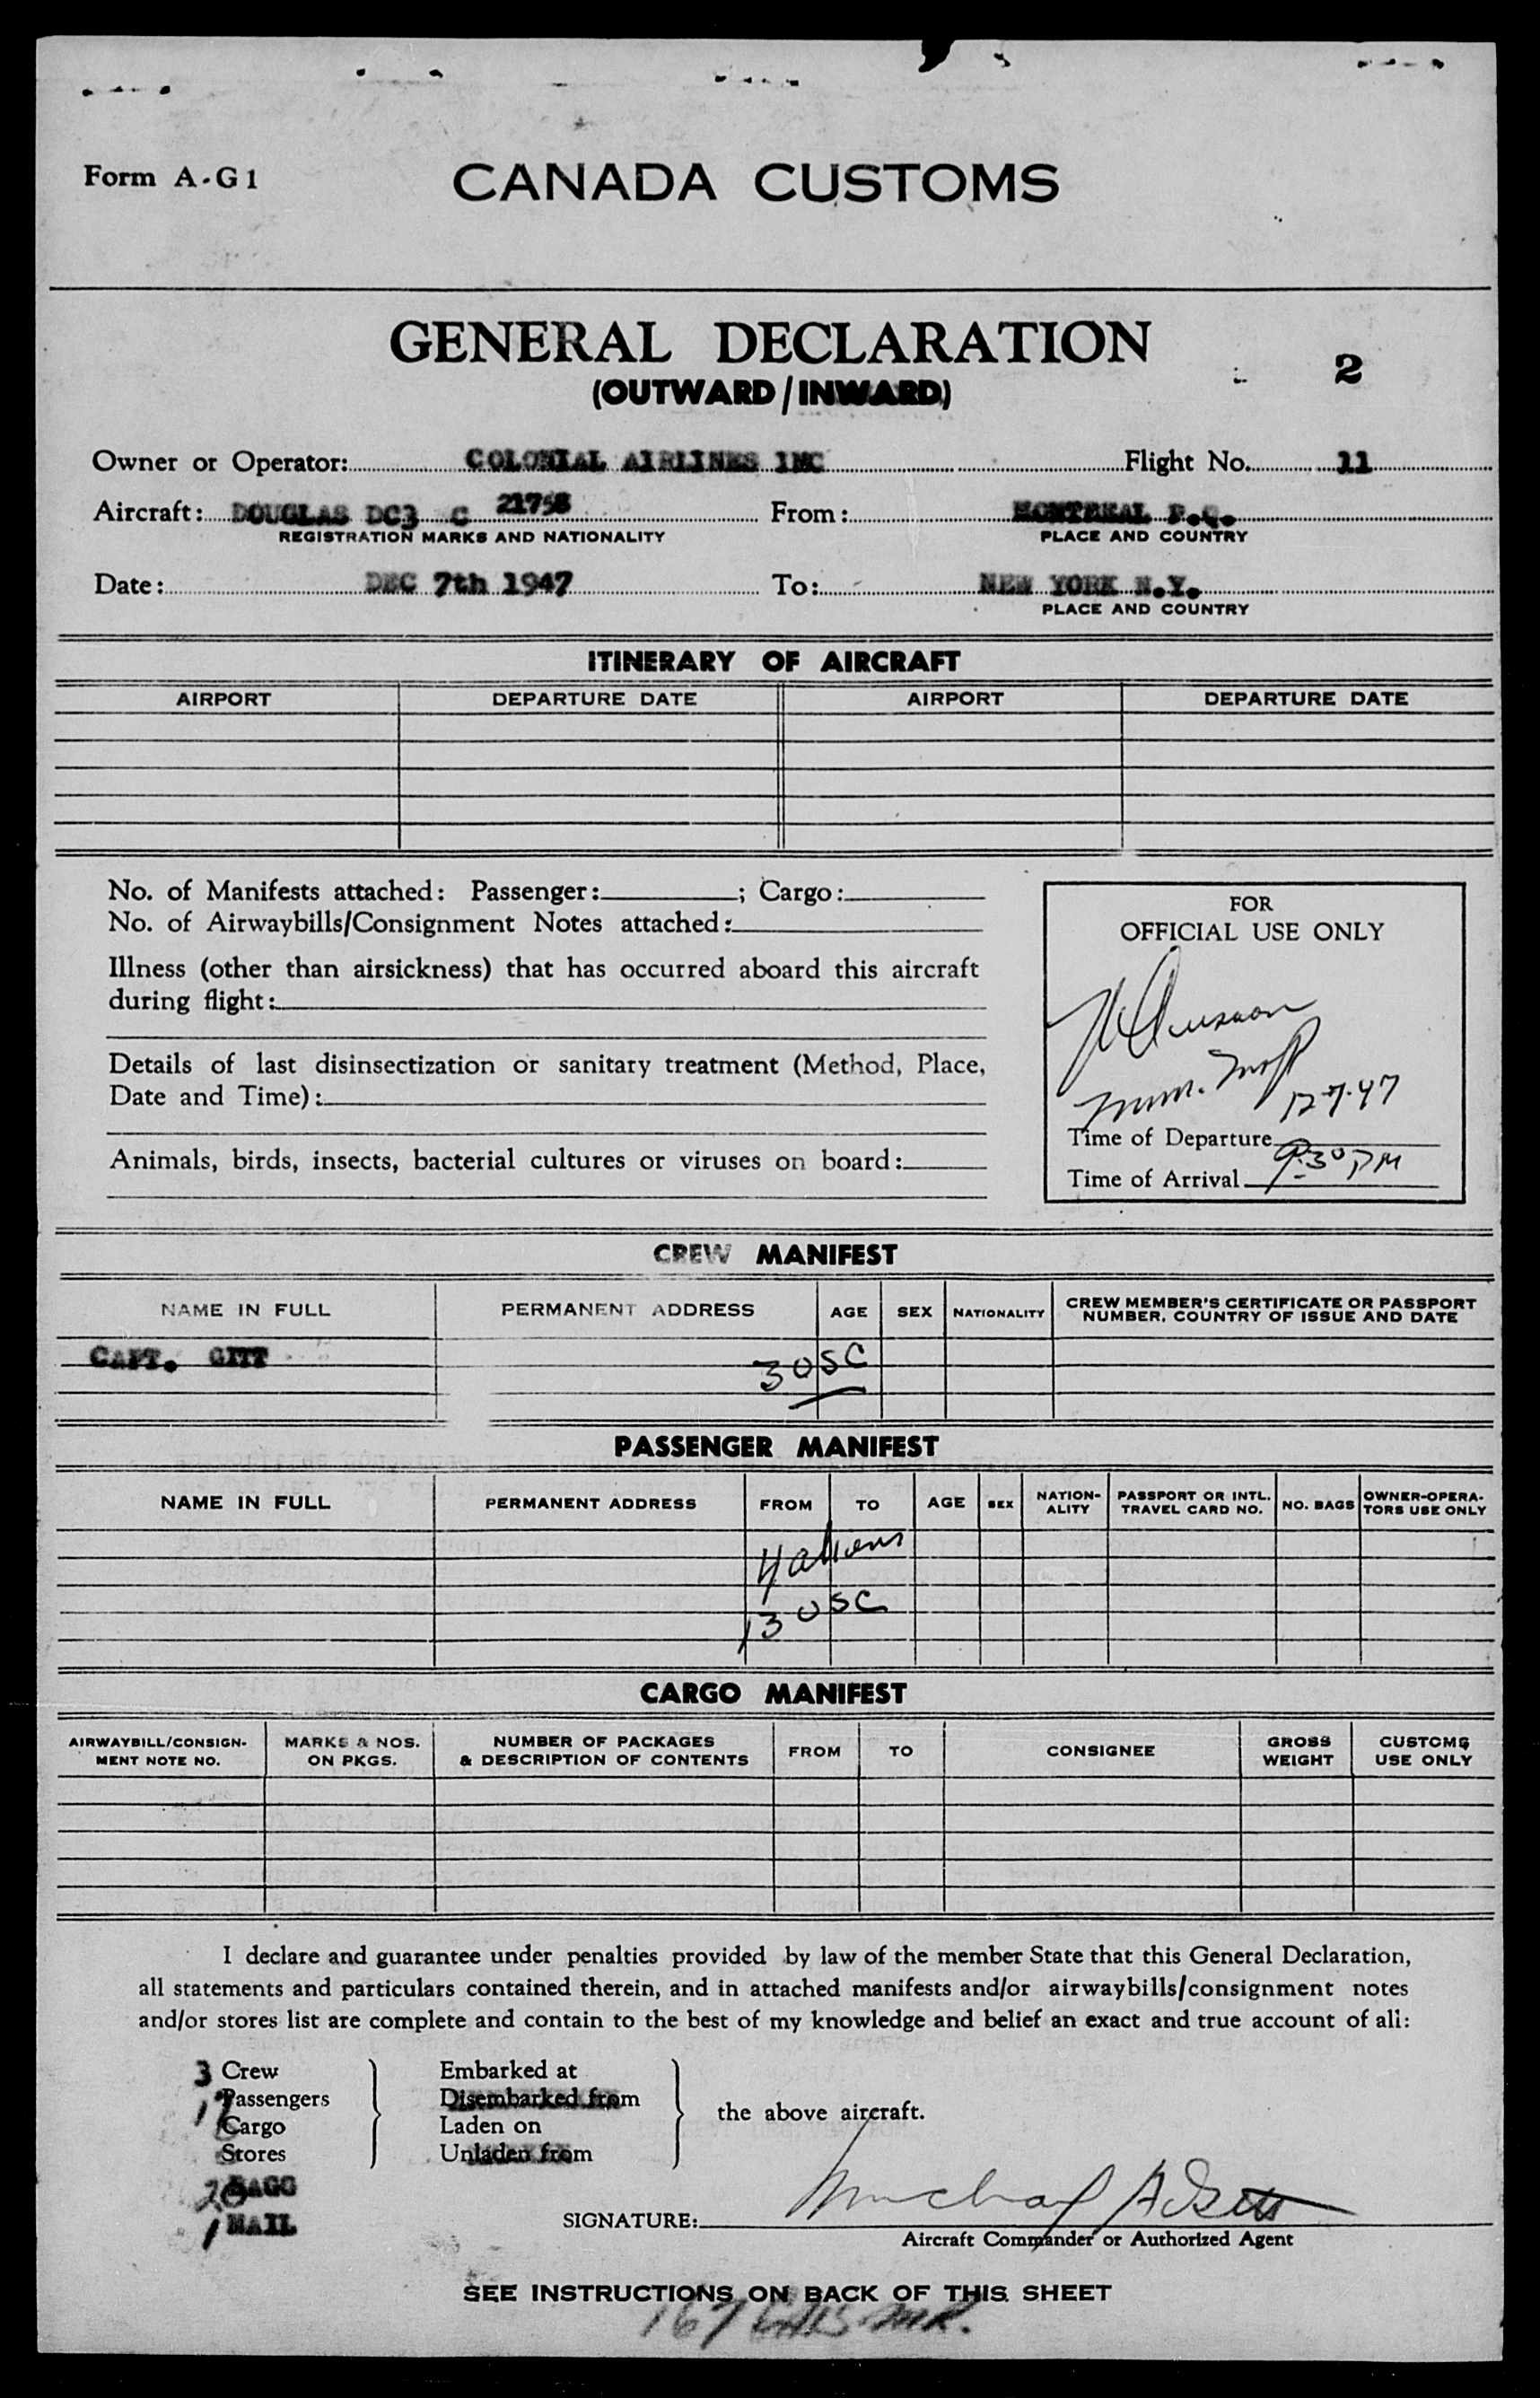 Form A-G1
CANADA CUSTOMS
GENERAL DECLARATION
(OUTWARD/INWARD)
2
Owner or Operator: COLONIAL AIRLINES INC Flight No. 11
Aircraft: DOUGLAS DC3 C 21758 From: MONTREAL P.Q.
REGISTRATION MARKS AND NATIONALITY PLACE AND COUNTRY
Date: DEC 7th 1947 To: NEW YORK N.Y.
PLACE AND COUNTRY
ITINERARY OF AIRCRAFT
AIRPORT DEPARTURE DATE AIRPORT DEPARTURE DATE
No. of Manifests attached: Passenger: ; Cargo:
No. of Airwaybills/Consignment Notes attached:
Illness (other than airsickness) that has occurred aboard this aircraft
during flight:
Details of last disinsectization or sanitary treatment (Method, Place,
Date and Time):
Animals, birds, insects, bacterial cultures or viruses on board:
FOR
OFFICIAL USE ONLY
12-7-47
Time of Departure
Time of Arrival 9:30 PM
CREW MANIFEST
NAME IN FULL PERMANENT ADDRESS AGE SEX NATIONALITY CREW MEMBER'S CERTIFICATE OR PASSPORT
NUMBER, COUNTRY OF ISSUE AND DATE
CAPT. GITT
3 USC
PASSENGER MANIFEST
NAME IN FULL PERMANENT ADDRESS FROM TO AGE SEX NATION-
ALITY PASSPORT OR INTL.
TRAVEL CARD NO. NO. BAGS OWNER-OPERA-
TORS USE ONLY
4 aliens
13 USC
CARGO MANIFEST
AIRWAYBILL/CONSIGN-
MENT NOTE NO. MARKS & NOS.
ON PKGS. NUMBER OF PACKAGES
& DESCRIPTION OF CONTENTS FROM TO CONSIGNEE GROSS
WEIGHT CUSTOMS
USE ONLY
I declare and guarantee under penalties provided by law of the member State that this General Declaration,
all statements and particulars contained therein, and in attached manifests and/or airwaybills/consignment notes
and/or stores list are complete and contain to the best of my knowledge and belief an exact and true account of all:
3 Crew Embarked at
17 Passengers Disembarked from
Cargo Laden on
Stores Unladen from
the above aircraft.
20 BAGG
1 MAIL
SIGNATURE: Michael A Gitt
Aircraft Commander or Authorized Agent
SEE INSTRUCTIONS ON BACK OF THIS SHEET
167